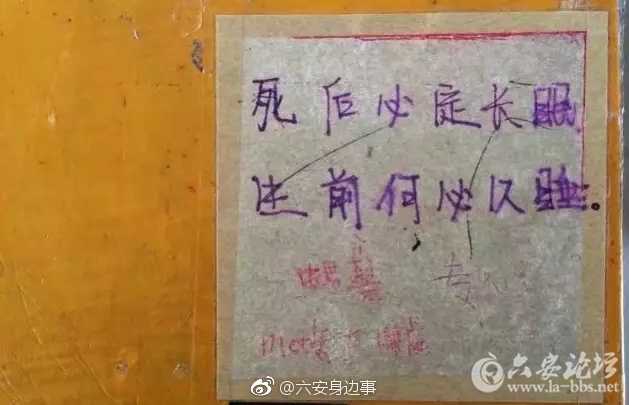 死后必定长眠
生前何必久睡。
@六安身边事
六安论坛
www.la-bbs.net